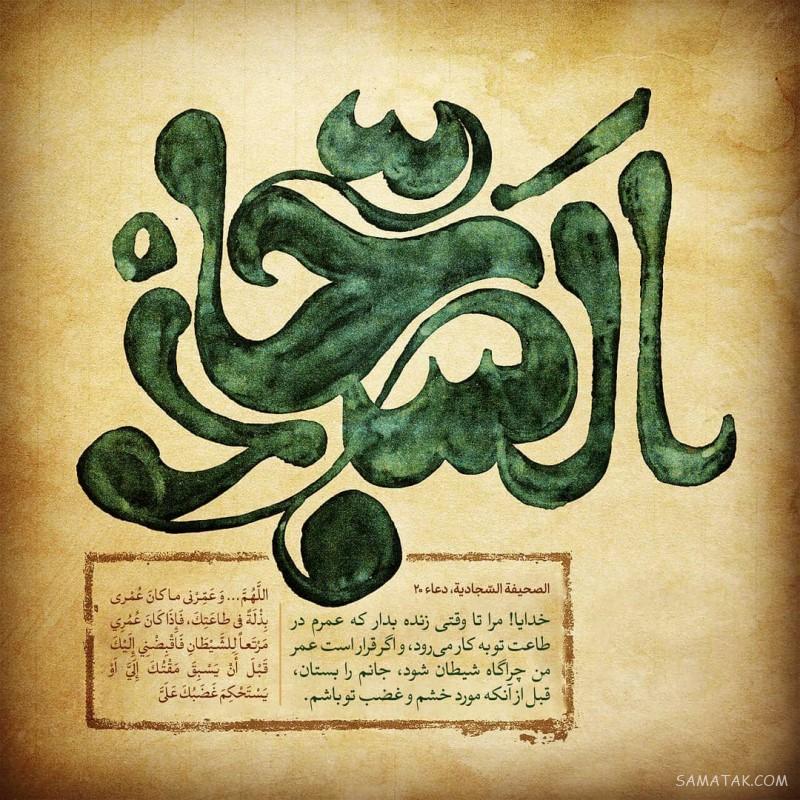 السَّجّاد
الصحیفة السّجادیة، دعاء ۲۰
خدایا! مرا تا وقتی زنده بدار که عمرم در
طاعت تو به کار می‌رود، و اگر قرار است عمر
من چراگاه شیطان شود، جانم را بستان،
قبل از آنکه مورد خشم و غضب تو باشم.
اللَّهُمَّ... وَ عَمِّرْنی ما کانَ عُمْری
بِذْلَةً فی طاعَتِكَ، فَإِذَا كَانَ عُمُرِي
مَرْتَعاً لِلشَّيْطَانِ فَاقْبِضْنِي إِلَيْكَ
قَبْلَ أَنْ يَسْبِقَ مَقْتُكَ إِلَيَّ أَوْ
يَسْتَحْكِمَ غَضَبُكَ عَلَيَّ
SAMATAK.COM